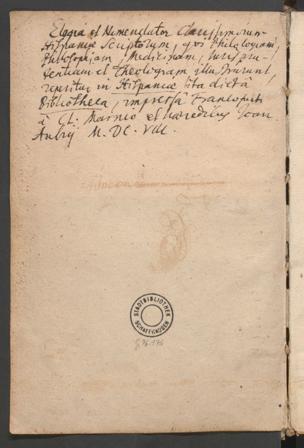 Elogia et Nomenclator Clarissimorum
Hispaniæ Scriptorum, qui Philologiam,
Philosophiam, Medicinam, Jurispru-
dentiam et Theologiam illustrarunt,
reperitur in Hispaniæ ita dicta
Bibliotheca, impressa Francofurti
à Cl. Marnio et hæredibus Joan
Aubrij M. DC. VIII.
STADTBIBLIOTHEK
SCHAFFHAUSEN